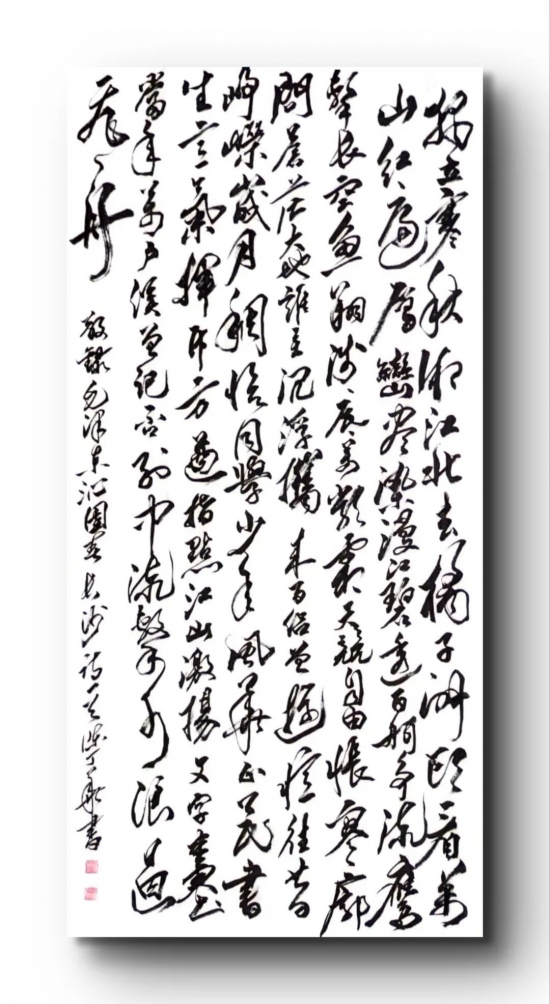 独立寒秋湘江北去橘子洲头看万
山红遍层巒尽染漫江碧透百舸争流鹰
擊长空鱼翔浅底万类霜天竞自由怅寥廓
问苍茫大地谁主沉浮攜来百侣曾遊忆往昔
峥嵘歲月稠恰同學少年風華正茂書
生意氣揮斥方遒指點江山激揚文字糞土
當年万户侯曾记否到中流擊水浪遏
飛舟
敬録毛泽东沁園春长沙诗一首 書